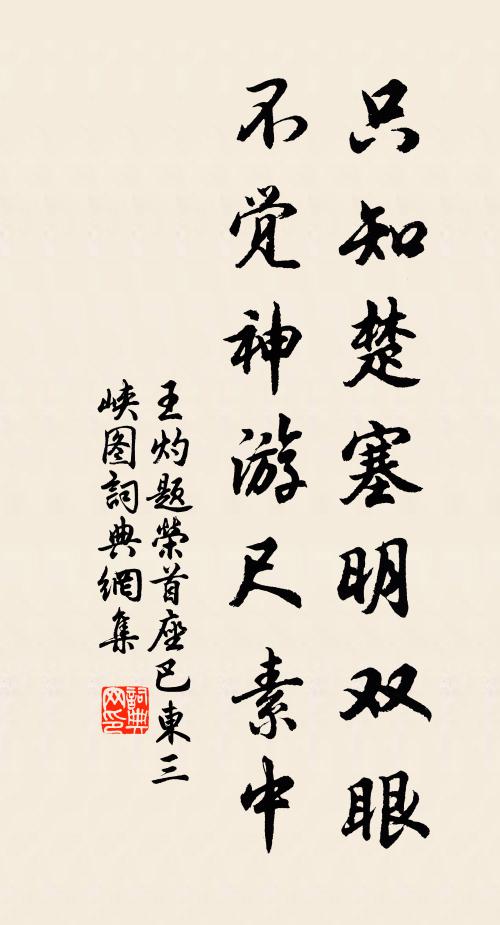 只知楚塞明双眼
不觉神游尺素中
王灼题榮首座巴東三
峡图詞典網集
詞典
网印